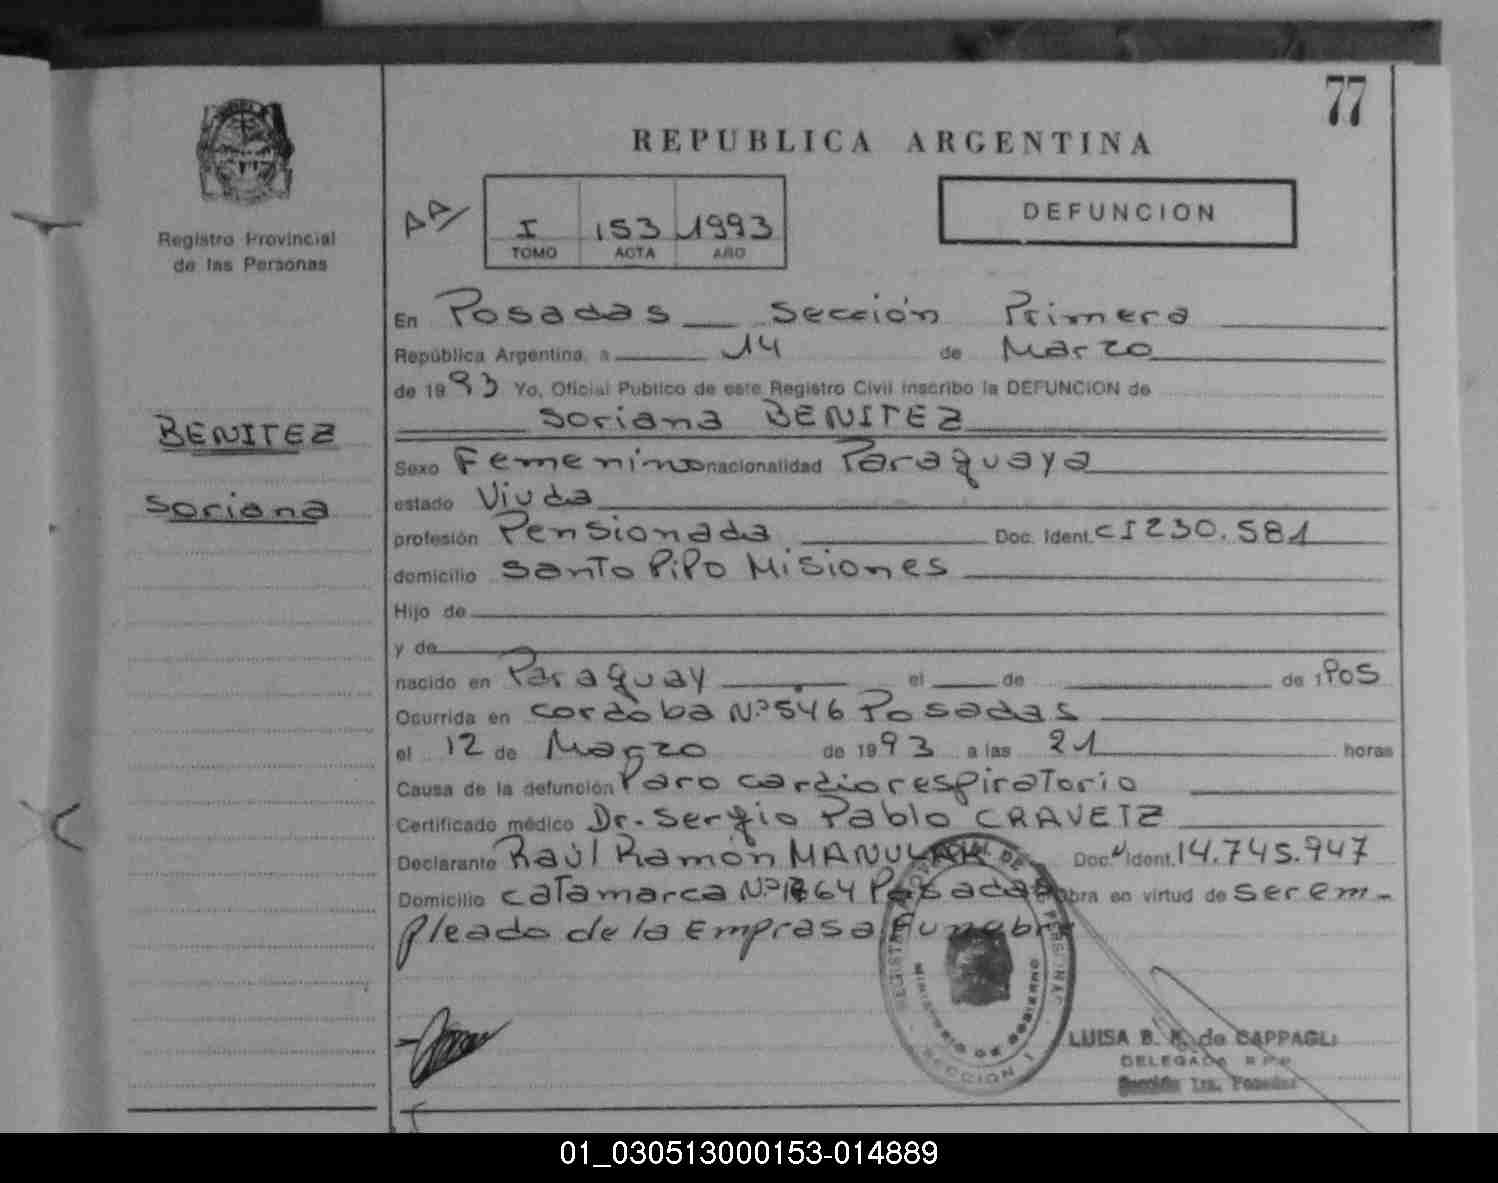 77
REPUBLICA ARGENTINA
AA/
I 153 1993
TOMO ACTA AÑO
DEFUNCION
Registro Provincial
de las Personas
En Posadas Sección Primera
República Argentina, a 14 de Marzo
de 1993 Yo, Oficial Publico de este Registro Civil inscribo la DEFUNCION de
Soriana BENITEZ
BENITEZ
Soriana
Sexo Femenino nacionalidad Paraguaya
estado Viuda
profesión Pensionada Doc. Ident. CI 230.581
domicilio Santo Pipo Misiones
Hijo de
y de
nacido en Paraguay el de de 1905
Ocurrida en Cordoba Nº 546 Posadas
el 12 de Marzo de 1993 a las 21 horas
Causa de la defunción Paro cardiorespiratorio
Certificado médico Dr. Sergio Pablo CRAVETZ
Declarante Raúl Ramón MANULAK Doc. Ident. 14.745.947
Domicilio Catamarca Nº 1764 Posadas Obra en virtud de ser em-
pleado de la Emprasa Funebre
REGISTRO PROVINCIAL DE PERSONAS
MINISTERIO DE GOBIERNO
SECCION 1
LUISA B. K. de CAPPAGLI
DELEGADA R.P.P.
Sección 1ra. Posadas
01_030513000153-014889